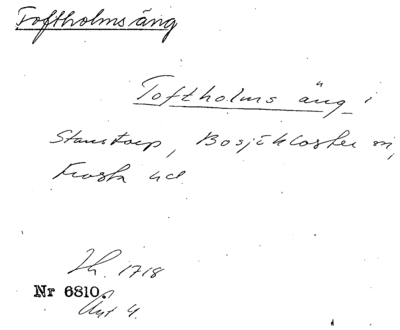 Toftholms äng
Toftholms äng i
Stanstorp, Bosjökloster sn,
Frosta hd
Lh. 1718
Nr 6810.
Akt 4.